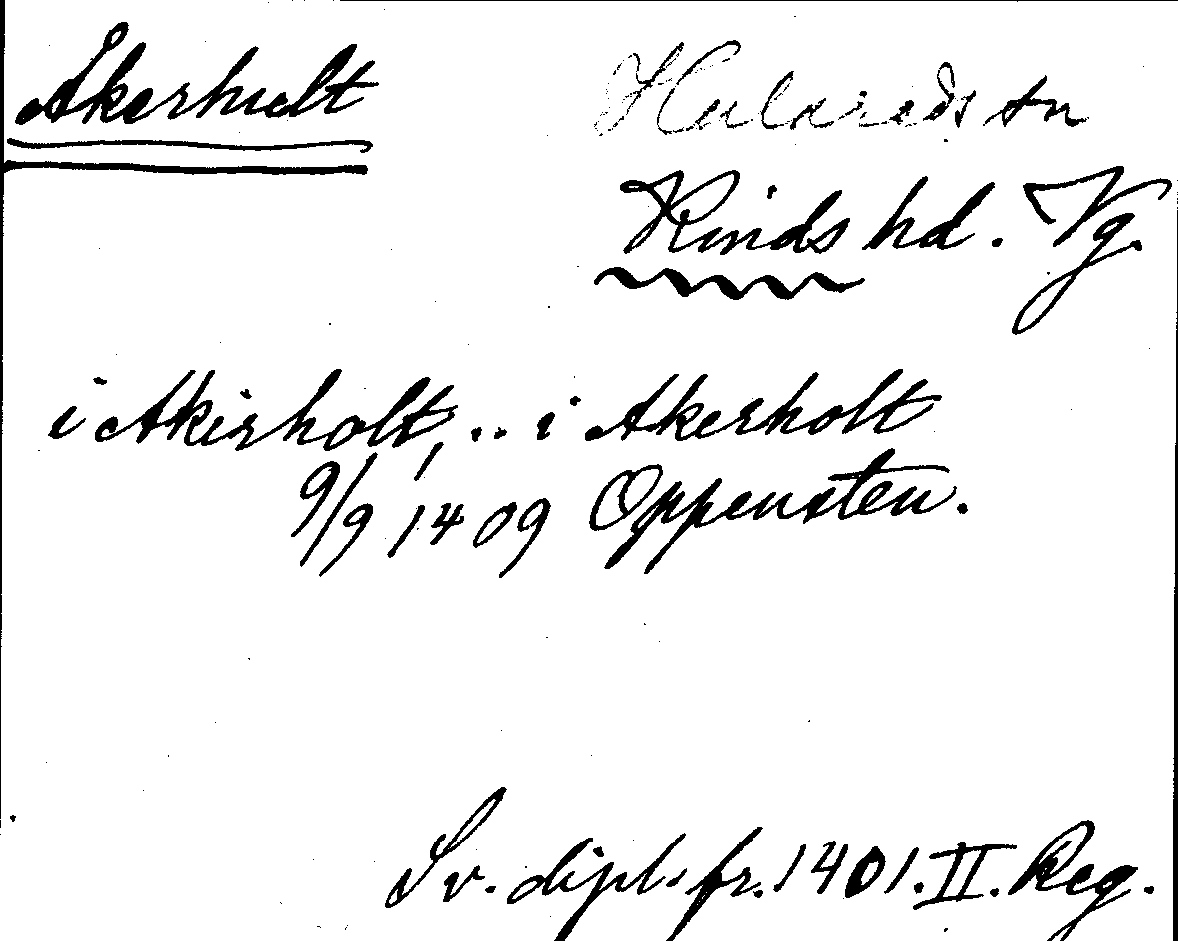 Åkerhult
Hulareds sn
Kinds hd. Vg.
i Akirholt, .. i Akerholt
9/9 1409 Oppensten.
Sv. dipl. fr. 1401. II. Reg.